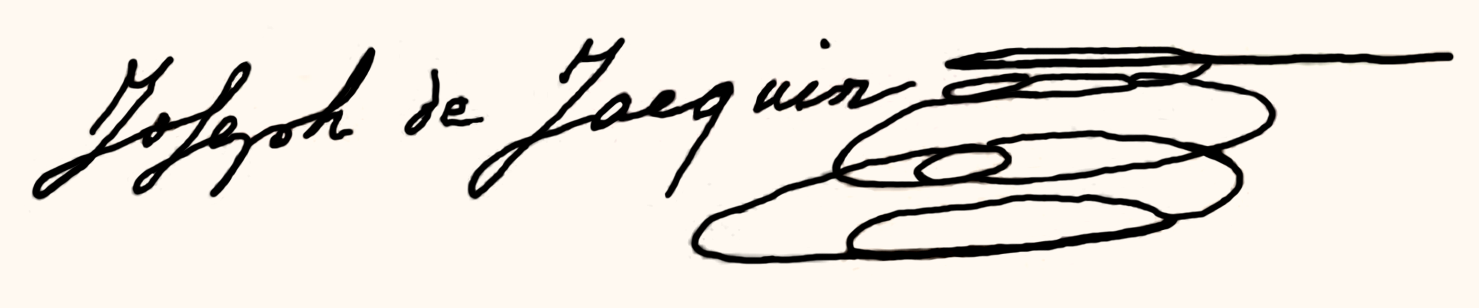 Joseph de Jacquin